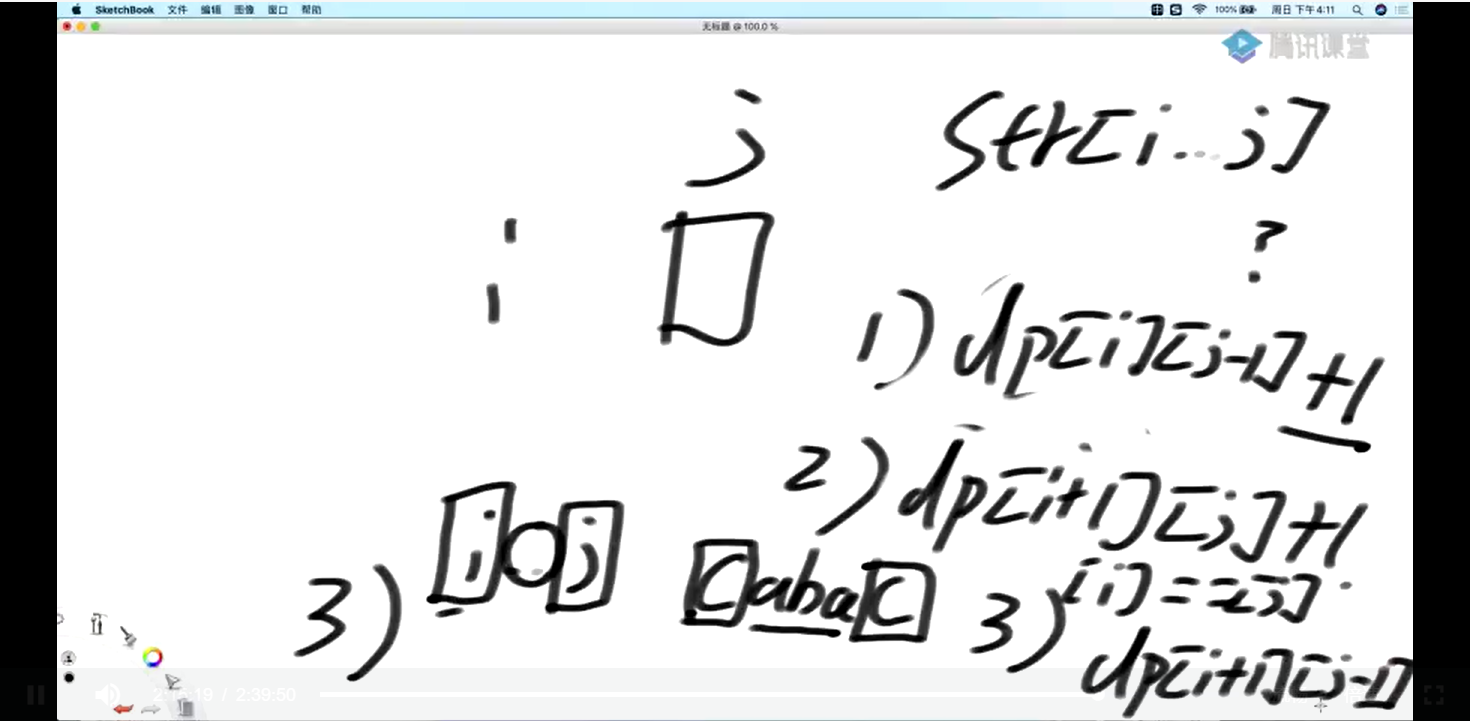 SketchBook 文件 编辑 图像 窗口 帮助 100% 周日下午4:11
无标题 @ 100.0 %
腾讯课堂
j str[i...j]
i ?
1) dp[i][j-1]+1
2) dp[i+1][j]+1
3) i j CabaC 3) [i]==[j]
dp[i+1][j-1]
2:15:19 / 2:39:50